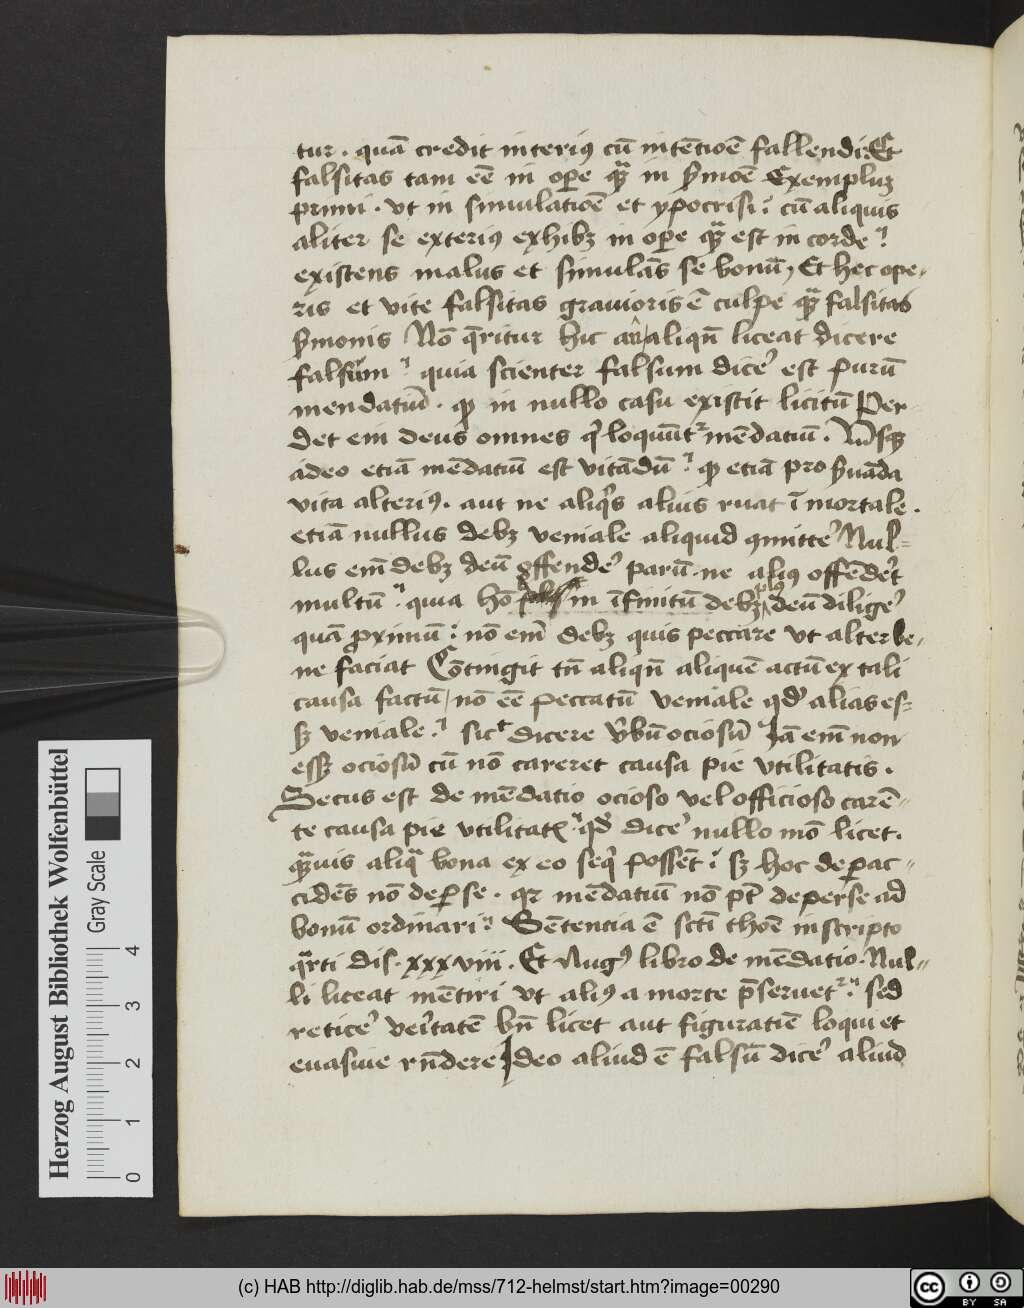 tur . quā credit interiꝰ cū intētioē fallendi : Et
falsitas tam eē in oꝑe qᷓꝫ in s̉moē Exempluꝫ
primi . vt in simulatioē et ypocrisi . cū aliquis
aliter se exteriꝰ exhibꝫ in oꝑe qᷓꝫ est in corde
existens malus et simulās se bonū , Et hec ope-
ris et vite falsitas grauioris ē culpe qᷓꝫ falsitas
s̉monis Nō q̄ritur hic an aliqn̄ liceat dicere
falsum quia scienter falsum dicē est purū
mendatiū . qꝫ in nullo casu existit licitū Per-
det em̄ deus omnes q̇ loquūtᷣ mēdatiū . Vn̄ sqꝫ
adeo etiā mēdatiū est vitādū qꝫ etiā pro s̉uāda
vita alteriꝰ . aut ne aliq̇s aliuis ruat ī mortale .
etiā nullus debꝫ veniale aliquid ꝯmitte᷑ Nul-
lus em̄ debꝫ deū offende᷑ parū . ne aliꝰ offēde᷑t
multū quia hō in īfinitū debꝫ plꝰ deū dilige᷑
quā ꝓximū : nō em̄ debꝫ quis peccare vt alter be-
ne faciat Cōtingit tn̄ aliqn̄ aliquē actū ex tali
causa factū / nō eē peccatū veniale qd̓ alias es-
sꝫ veniale . sicᷓ dicere v̓bū ociosū Iā em̄ non
essꝫ ociosū cū nō careret causa pie vtilitatis .
Secus est de mēdatio ocioso vel officioso carē-
te causa pie vtilitatꝭ qd̓ dice᷑ nullo mō licet .
qᷓꝫuis aliqᷓ bona ex eo seq̇ possēt . sꝫ hoc de ꝑ ac-
cidēs nō de ꝑ se . qꝛ mēdatiū nō pt̄ de perse ad
bonū ordinari Sētentia ē scti thoē in scripto
qᷓrti dis . xxxviii . Et Augꝰ libro de mēdatio . Nul-
li liceat mētiri vt aliꝰ a morte p̄seruetᷣ . sed
retice᷑ veritatē bn̄ licet aut figuratiē loqui et
euasiue rn̄dere Ideo aliud ē falsū dice᷑ aliud
Herzog August Bibliothek Wolfenbüttel
Gray Scale
0 1 2 3 4
(c) HAB http://diglib.hab.de/mss/712-helmst/start.htm?image=00290
cc BY SA